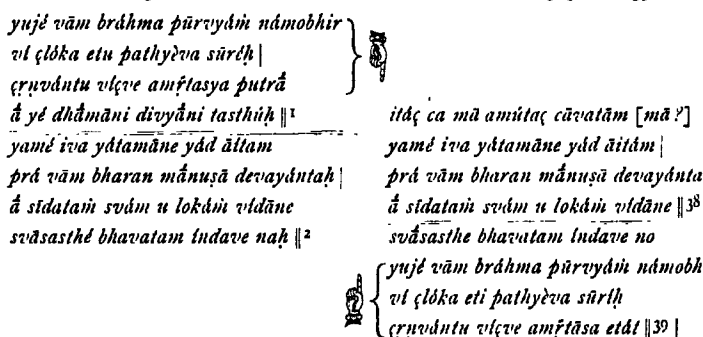 yujé vām bráhma pūrvyáṁ námobhir
ví çlóka etu pathyèva sūréḥ |
çṛṇvántu víçve amṛ́tasya putrā́
ā́ yé dhā́māni divyā́ni tasthúḥ ||1
yamé iva yátamāne yád āítam
prá vām bharan mā́nuṣā devayántaḥ |
ā́ sīdataṁ svám u lokáṁ vídāne
svāsasthé bhavatam índave naḥ ||2
itáç ca mā amútaç cāvatām [mā ?]
yamé iva yátamāne yád āitám |
prá vām bharan mā́nuṣā devayánta
ā́ sīdataṁ svám u lokáṁ vídāne ||38
svā́sasthe bhavatam índave no
yujé vām bráhma pūrvyáṁ námobh
ví çlóka eti pathyèva sūríḥ
çṛṇvántu víçve amṛ́tāsa etát ||39 |